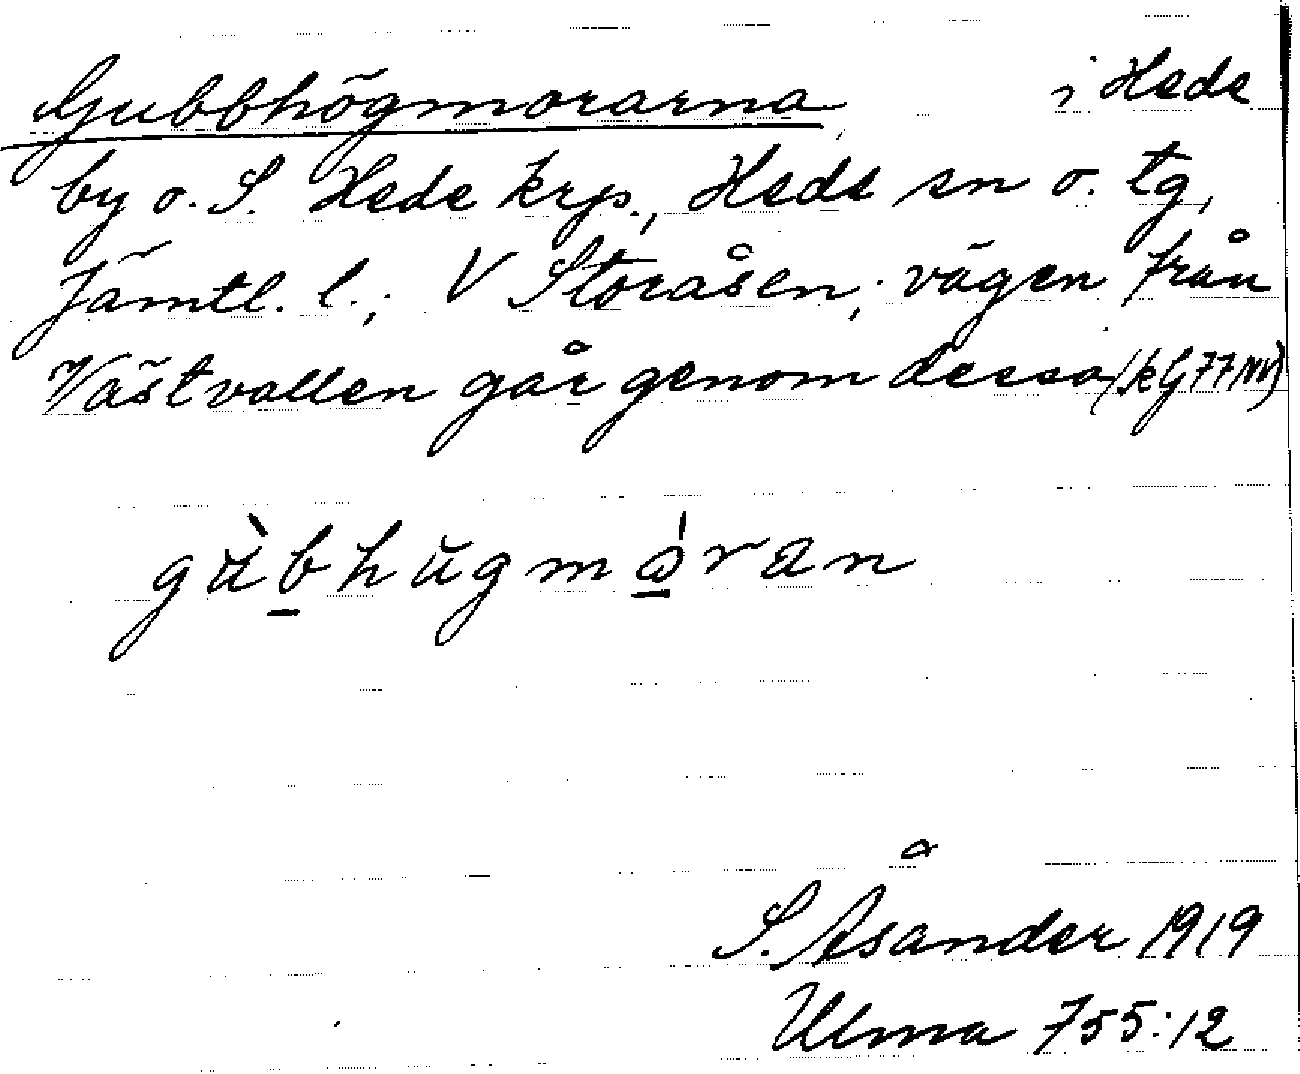 Gubbhögmorarna i Hede
by o. S. Hede krp., Hede sn o. tg,
Jämtl. l.; V Storåsen; vägen från
Västvallen går genom dessa (kG77NV)
gùbhŭgmǫ́ran
S. Åsander 1919
Ulma 755:12